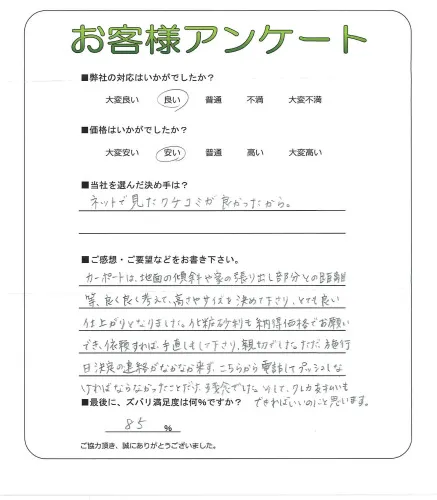 お客様アンケート
■弊社の対応はいかがでしたか？
大変良い 良い 普通 不満 大変不満
■価格はいかがでしたか？
大変安い 安い 普通 高い 大変高い
■当社を選んだ決め手は？
ネットで見たクチコミが良かったから。
■ご感想・ご要望などをお書き下さい。
カーポートは、地面の傾斜や家の張り出し部分との距離
等、良く良く考えて、高さやサイズを決めて下さり、とても良い
仕上がりとなりました。化粧砂利も納得価格でお願い
でき、依頼すれば、手直しもして下さり、親切でした。ただ、施行
日決定の連絡がなかなか来ず、こちらから電話してプッシュしな
ければならなかったことだけ残念でした。そして、クレカ支払いも
できればいいのにと思います。
■最後に、ズバリ満足度は何%ですか？
85 %
ご協力頂き、誠にありがとうございました。